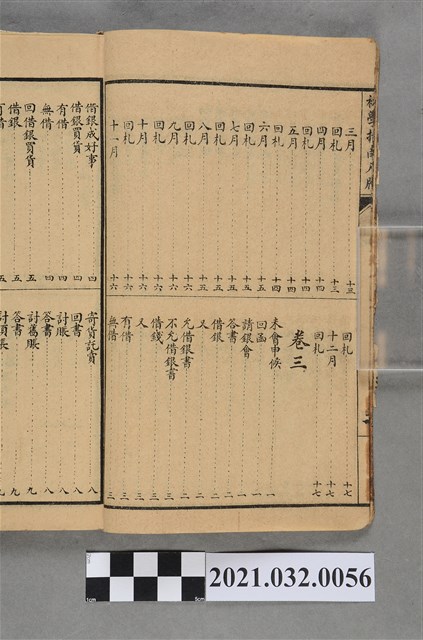 三月 十三
回札 十三
四月 十四
回札 十四
五月 十四
回札 十四
六月 十四
回札 十五
七月 十五
回札 十五
八月 十五
回札 十五
九月 十五
回札 十六
十月 十六
回札 十六
十一月 十六
回札 十七
十二月 十七
回札 十七
卷三
未會申候 一
回函 一
請銀會 一
答書 一
借銀 二
又 二
允借銀書 二
不允借銀書 三
借錢 三
又 三
有借 三
無借 三
借銀成好事 四
借銀買貨 四
有借 四
無借 四
回借銀買貨 五
借銀 五
寄貨託賣 八
回書 八
討賬 八
答書 八
討舊賬 九
答書 九
2021.032.0056
1cm
5cm